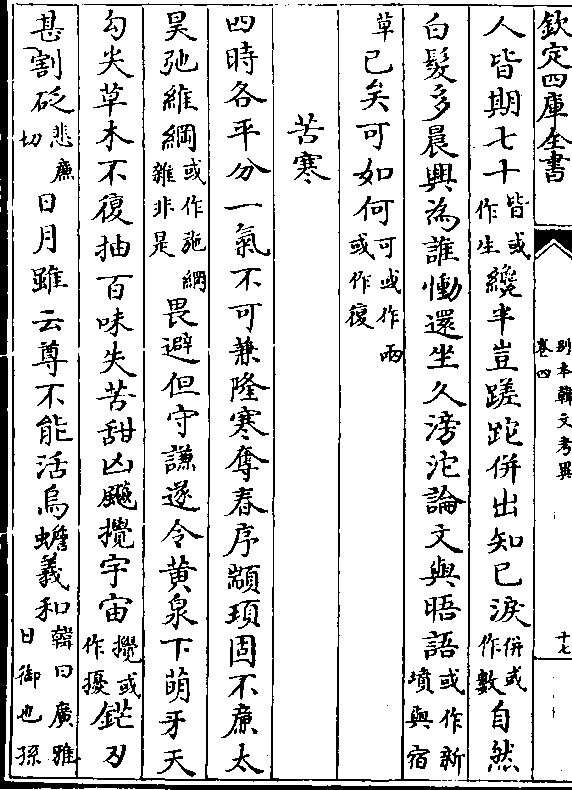 欽定四庫全書
别本韓文考異
卷四
十七
人皆期七十皆或作生纔半豈蹉跎併出知已淚併或作數自然
白髮多晨興為誰慟還坐久滂沱論文與晤語或作新墳與宿
草已矣可如何可或作兩或作復
苦寒
四時各平分一氣不可兼隆寒奪春序顓頊固不廉太
昊弛維綱或作弛綱雜非是畏避但守謙遂令黄泉下萌牙夭
勾尖草木不復抽百味失苦甜凶飇攪宇宙攪或作擾鋩刃
甚割砭悲廉切日月雖云尊不能活烏蟾羲和韓曰廣雅日御也孫